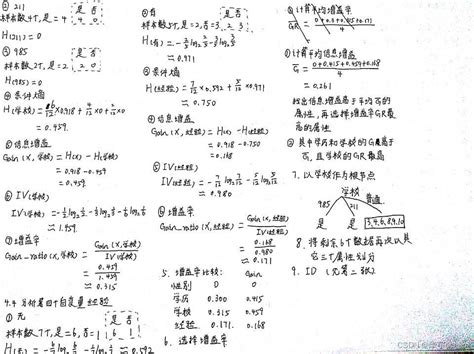 ② 211
是 否
样本数4个,是=4
4 0
H(211)=0
③ 985
是 否
样本数2个,是=2
2 0
H(985)=0
④ 条件熵
H(学校)=6/12×0.918+4/12×0+2/12×0
=0.459
⑤ 信息增益
Gain(X,学校)=H(X)-H(学校)
=0.918-0.459
=0.459
⑥ IV(学校)
IV(学校)=-1/2log₂1/2-1/3log₂1/3-1/6log₂1/6
≈1.459
⑦ 增益率
Gain_ratio(X,学校)=Gain(X,学校)/IV(学校)
=0.459/1.459
≈0.315
4.4 分析第四个自变量经验
① 无
是 否
样本数7个,是=6,否=1
6 1
≈0.592
② 有
是 否
样本数5个,是=2,否=3
2 3
H(有)=-2/5log₂2/5-3/5log₂3/5
≈0.971
③ 条件熵
H(经验)=7/12×0.592+5/12×0.971
≈0.750
④ 信息增益
Gain(X,经验)=H(X)-H(经验)
=0.918-0.750
=0.168
⑤ IV(经验)
IV(经验)=-7/12log₂7/12-5/12log₂5/12
≈0.980
⑥ 增益率
Gain_ratio(X,经验)=Gain(X,经验)/IV(经验)
=0.168/0.980
≈0.171
5. 增益率比较:
Gain
性别 0 0
学历 0.300 0.415
学校 0.315 0.459
经验 0.171 0.168
6. 选择增益率
① 计算平均增益率
GR=
① 计算平均信息增益
G=0+0.415+0.459+0.168/4
=0.261
找出信息增益高于平均G的
属性,再选择增益率GR最
高的属性
② 其中学历和学校的G高于
G,且学校的GR最高
7. 以学校作为根节点
学校
985 211 普通
是 是 3,4,6,8,9,10
8. 将剩余6个数据再次以其
它三个属性划分
9. ID